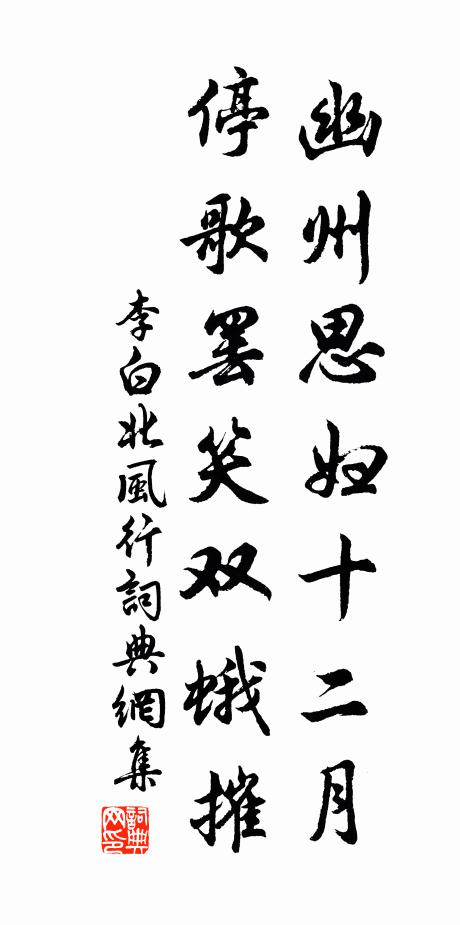 幽州思妇十二月
停歌罢笑双蛾摧
李白北風行詞典網集
詞典
网印